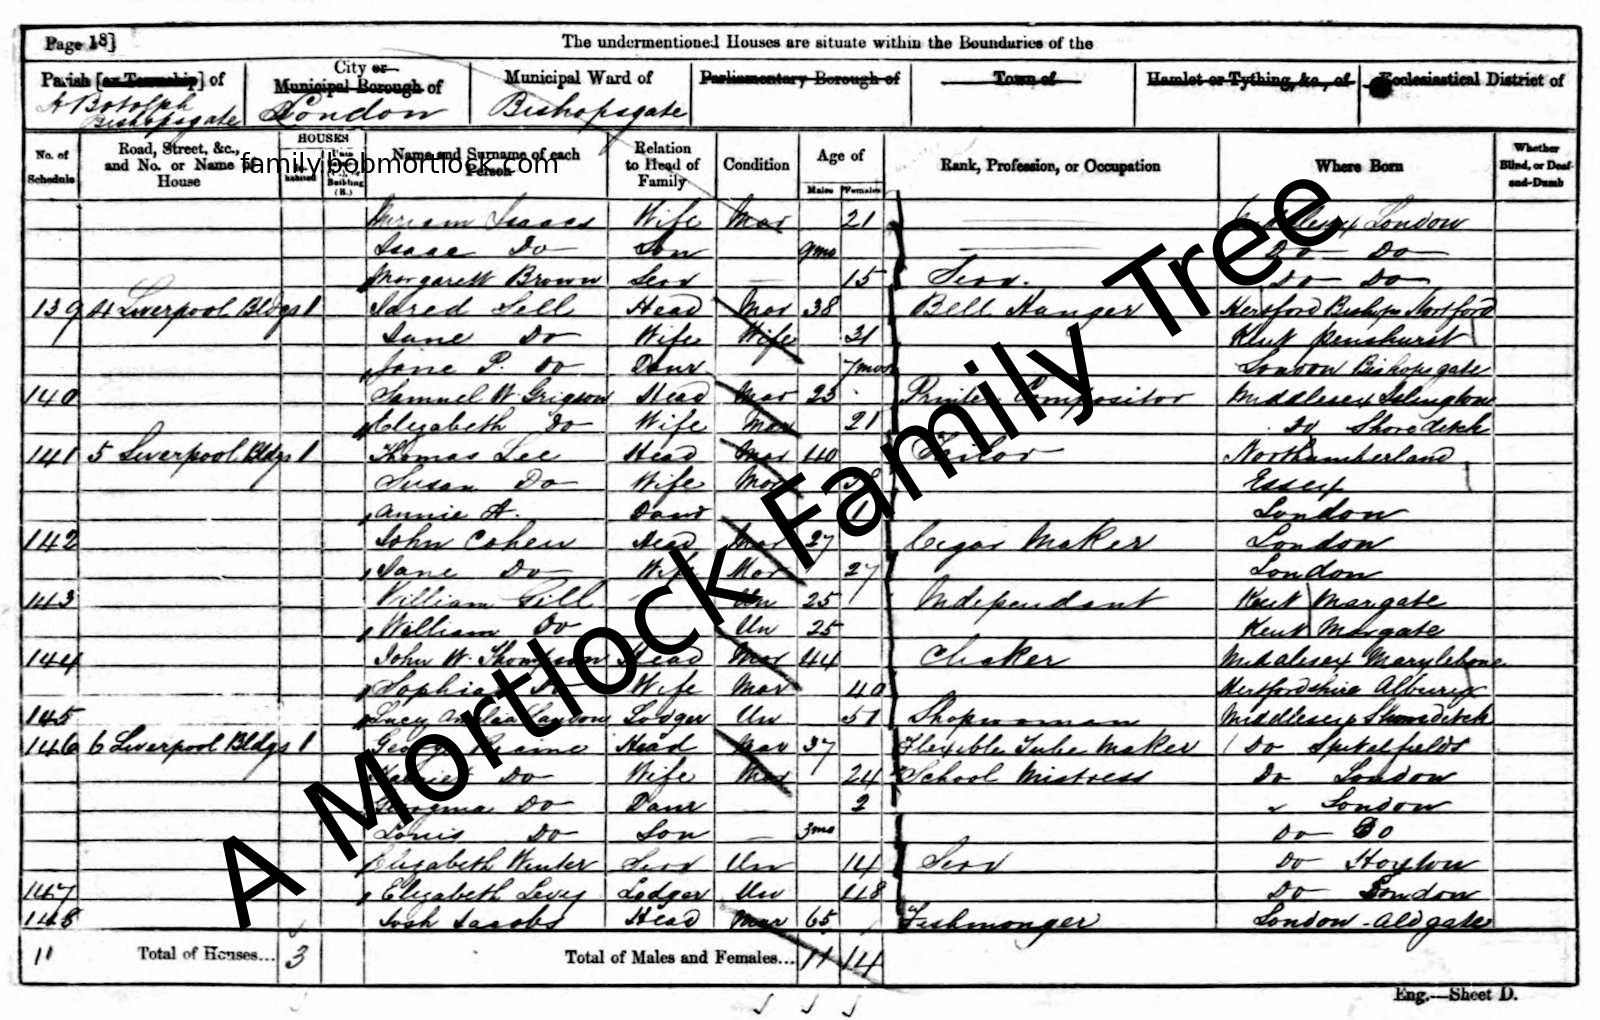 Page 18]
The undermentioned Houses are situate within the Boundaries of the
Parish [or Township] of
City or Municipal Borough of
Municipal Ward of
Parliamentary Borough of
Town of
Hamlet or Tything, &c., of
Ecclesiastical District of
St Botolph Bishopsgate
London
Bishopsgate
No. of Schedule
Road, Street, &c., and No. or Name of House
HOUSES
Name and Surname of each Person
Relation to Head of Family
Condition
Age of
Males
Females
Rank, Profession, or Occupation
Where Born
Whether Blind, or Deaf-and-Dumb
family.bobmortlock.com
Miriam Isaacs Wife Mar 21 Middlesex London
Isaac Do Son 9mo Do Do
Margarett Brown Serv 15 Serv. Do Do
139 4 Liverpool Bldgs 1 Jared Sell Head Mar 38 Bell Hanger Hertford Bishops Stortford
Jane Do Wife Wife 31 Kent Penshurst
Jane P. Do Daur 7mos London Bishopsgate
140 Samuel W Grigson Head Mar 23 Printer Compositor Middlesex Islington
Elizabeth Do Wife Mar 21 Do Shoreditch
141 5 Liverpool Bldgs 1 Thomas Lee Head Mar 40 Tailor Northumberland
Susan Do Wife Mar 38 Essex
Annie A. Daur 1 London
142 John Cohen Head Mar 27 Cigar Maker London
Jane Do Wife Mar 27 London
143 William Gill Un 25 Independant Kent Margate
William Do Un 25 Kent Margate
144 John W. Thompson Head Mar 44 Clicker Middlesex Marylebone
Sophia Do Wife Mar 40 Hertfordshire Albury
145 Lucy Lodger Un 51 Shopwoman Middlesex Shoreditch
146 6 Liverpool Bldgs 1 George Head Mar 37 Flexible Tube Maker Do Spitalfields
Harriet Do Wife Mar 24 School Mistress Do London
Georgina Do Daur 2 London
Louis Do Son 3mo Do Do
Elizabeth Winter Serv Un 14 Serv Do Hoxton
147 Elizabeth Levy Lodger Un 48 Do London
148 Josh Jacobs Head Mar 65 Fishmonger London Aldgate
11 Total of Houses... 3 Total of Males and Females... 11 14
Eng.—Sheet D.
A Mortlock Family Tree